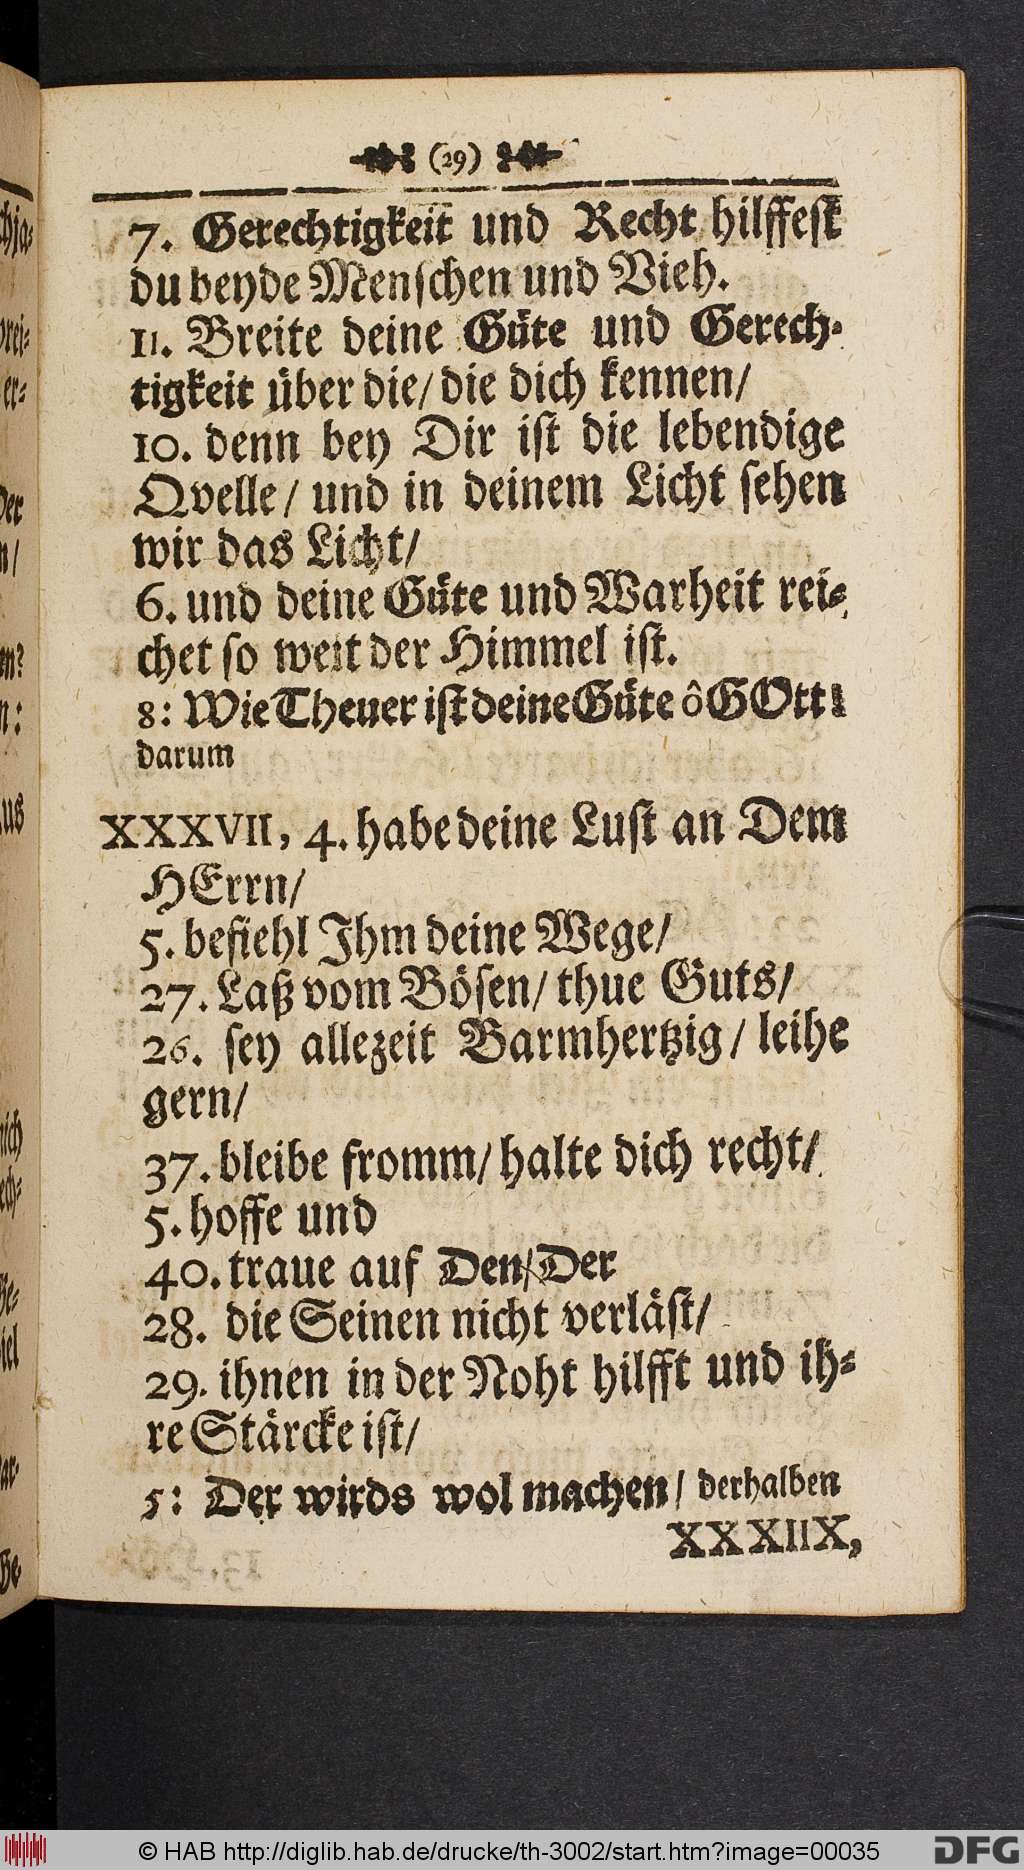 (29)
7. Gerechtigkeit und Recht hilffest
du beyde Menschen und Vieh.
11. Breite deine Güte und Gerech-
tigkeit über die/ die dich kennen/
10. denn bey Dir ist die lebendige
Qvelle/ und in deinem Licht sehen
wir das Licht/
6. und deine Güte und Warheit rei-
chet so weit der Himmel ist.
8: Wie Theuer ist deine Güte ô GOtt!
darum
XXXVII, 4. habe deine Lust an Dem
HErrn/
5. befiehl Ihm deine Wege/
27. Laß vom Bösen/ thue Guts/
26. sey allezeit Barmhertzig/ leihe
gern/
37. bleibe fromm/ halte dich recht/
5. hoffe und
40. traue auf Den/ Der
28. die Seinen nicht verläst/
29. ihnen in der Noht hilfft und ih-
re Stärcke ist/
5: Der wirds wol machen/ derhalben
XXXIIX,
© HAB http://diglib.hab.de/drucke/th-3002/start.htm?image=00035
DFG